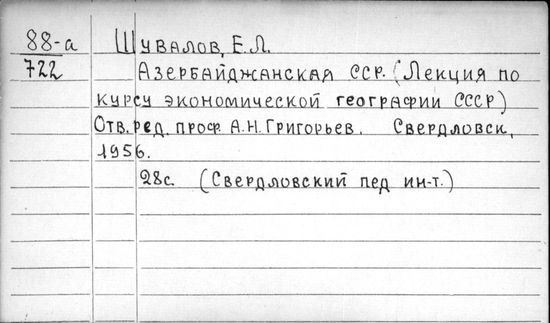 88-а Шувалов, Е.Л.
722 Азербайджанская ССР. (Лекция по
курсу экономической географии СССР)
Отв. ред. проф. А.Н. Григорьев. Свердловск,
1956.
28с. (Свердловский пед ин-т.)